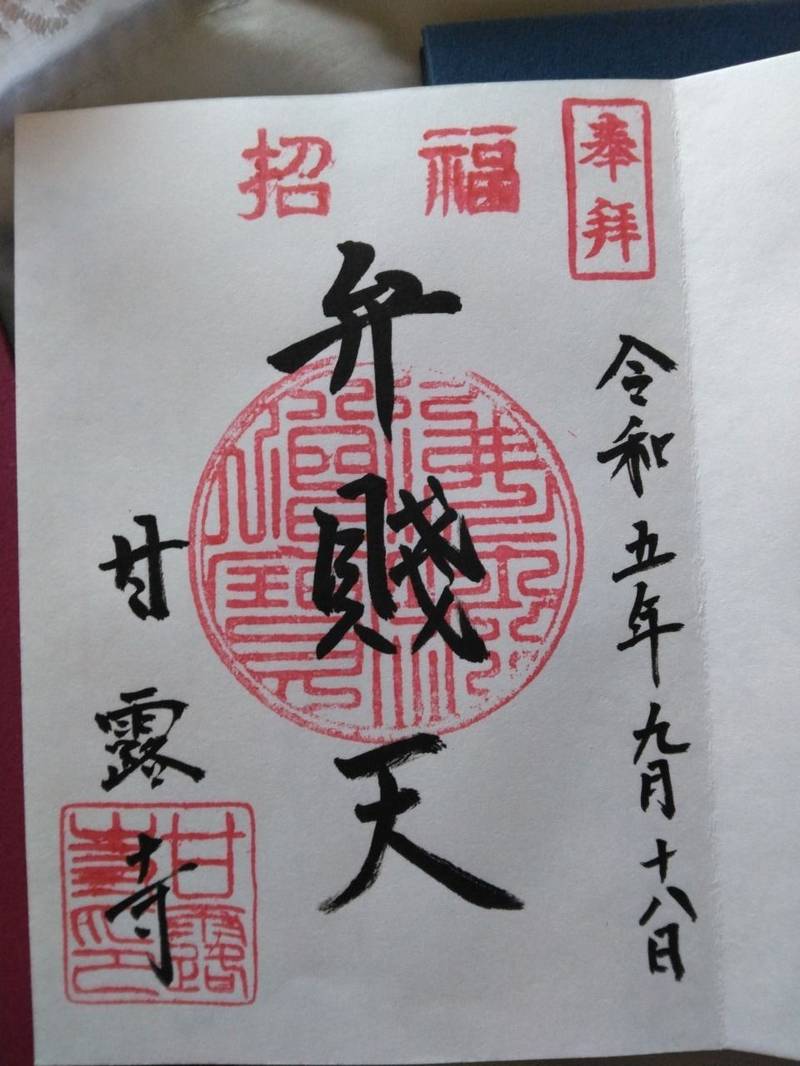 奉拝
招福
令和五年九月十八日
弁賤天
甘露寺
甘露寺印